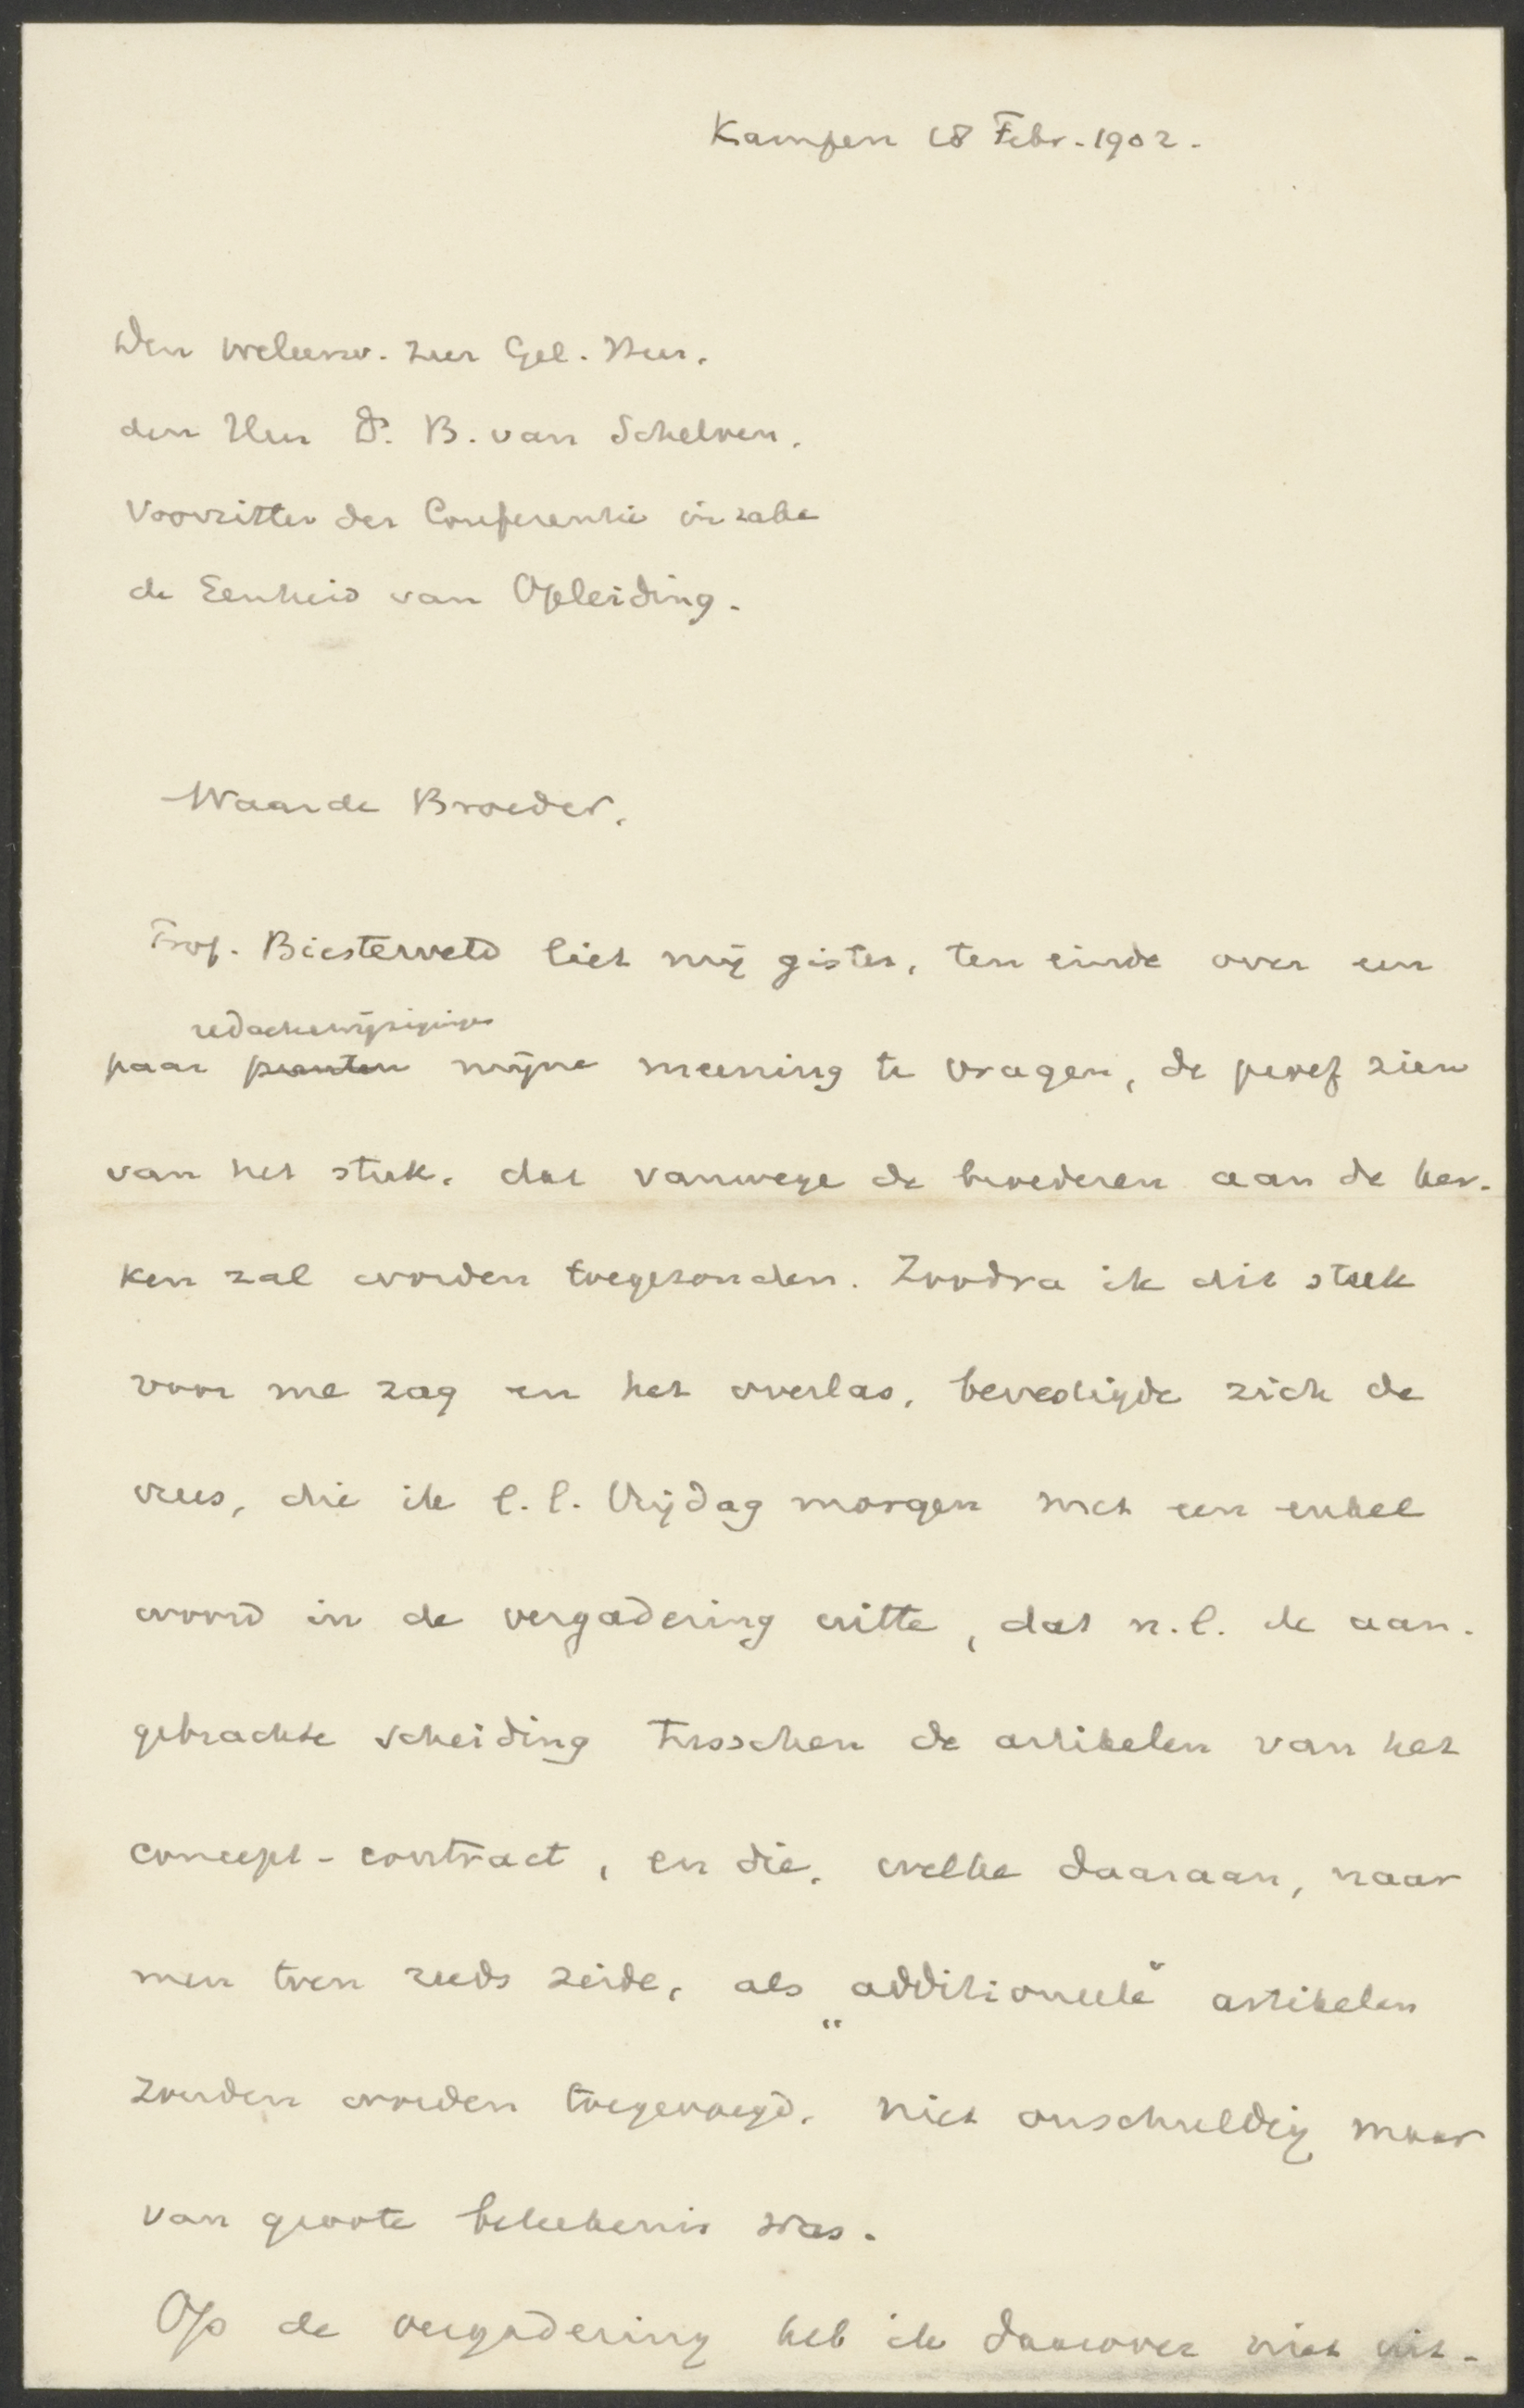 Kampen 18 Febr. 1902.
Den Weleerw. Zeer Gel. Heer.
den Heer Ds. B. van Schelven.
Voorzitter der Conferentie in zake
de Eenheid van Opleiding.
Waarde Broeder.
Prof. Biesterveld liet mij gister, ten einde over een
redactiewijzigingen
paar punten mijne meening te vragen, de proef zien
van het stuk, dat vanwege de broederen aan de ker-
ken zal worden toegezonden. Zoodra ik dit stuk
voor me zag en het overlas, bevestigde zich de
vrees, die ik l.l. Vrijdag morgen met een enkel
woord in de vergadering uitte, dat n.l. de aan-
gebrachte scheiding tusschen de artikelen van het
concept-contract, en die, welke daaraan, naar
men toen reeds zeide, als „additioneele" artikelen
zouden worden toegevoegd, niet onschuldig maar
van groote beteekenis was.
Op de vergadering heb ik daarover niet uit-